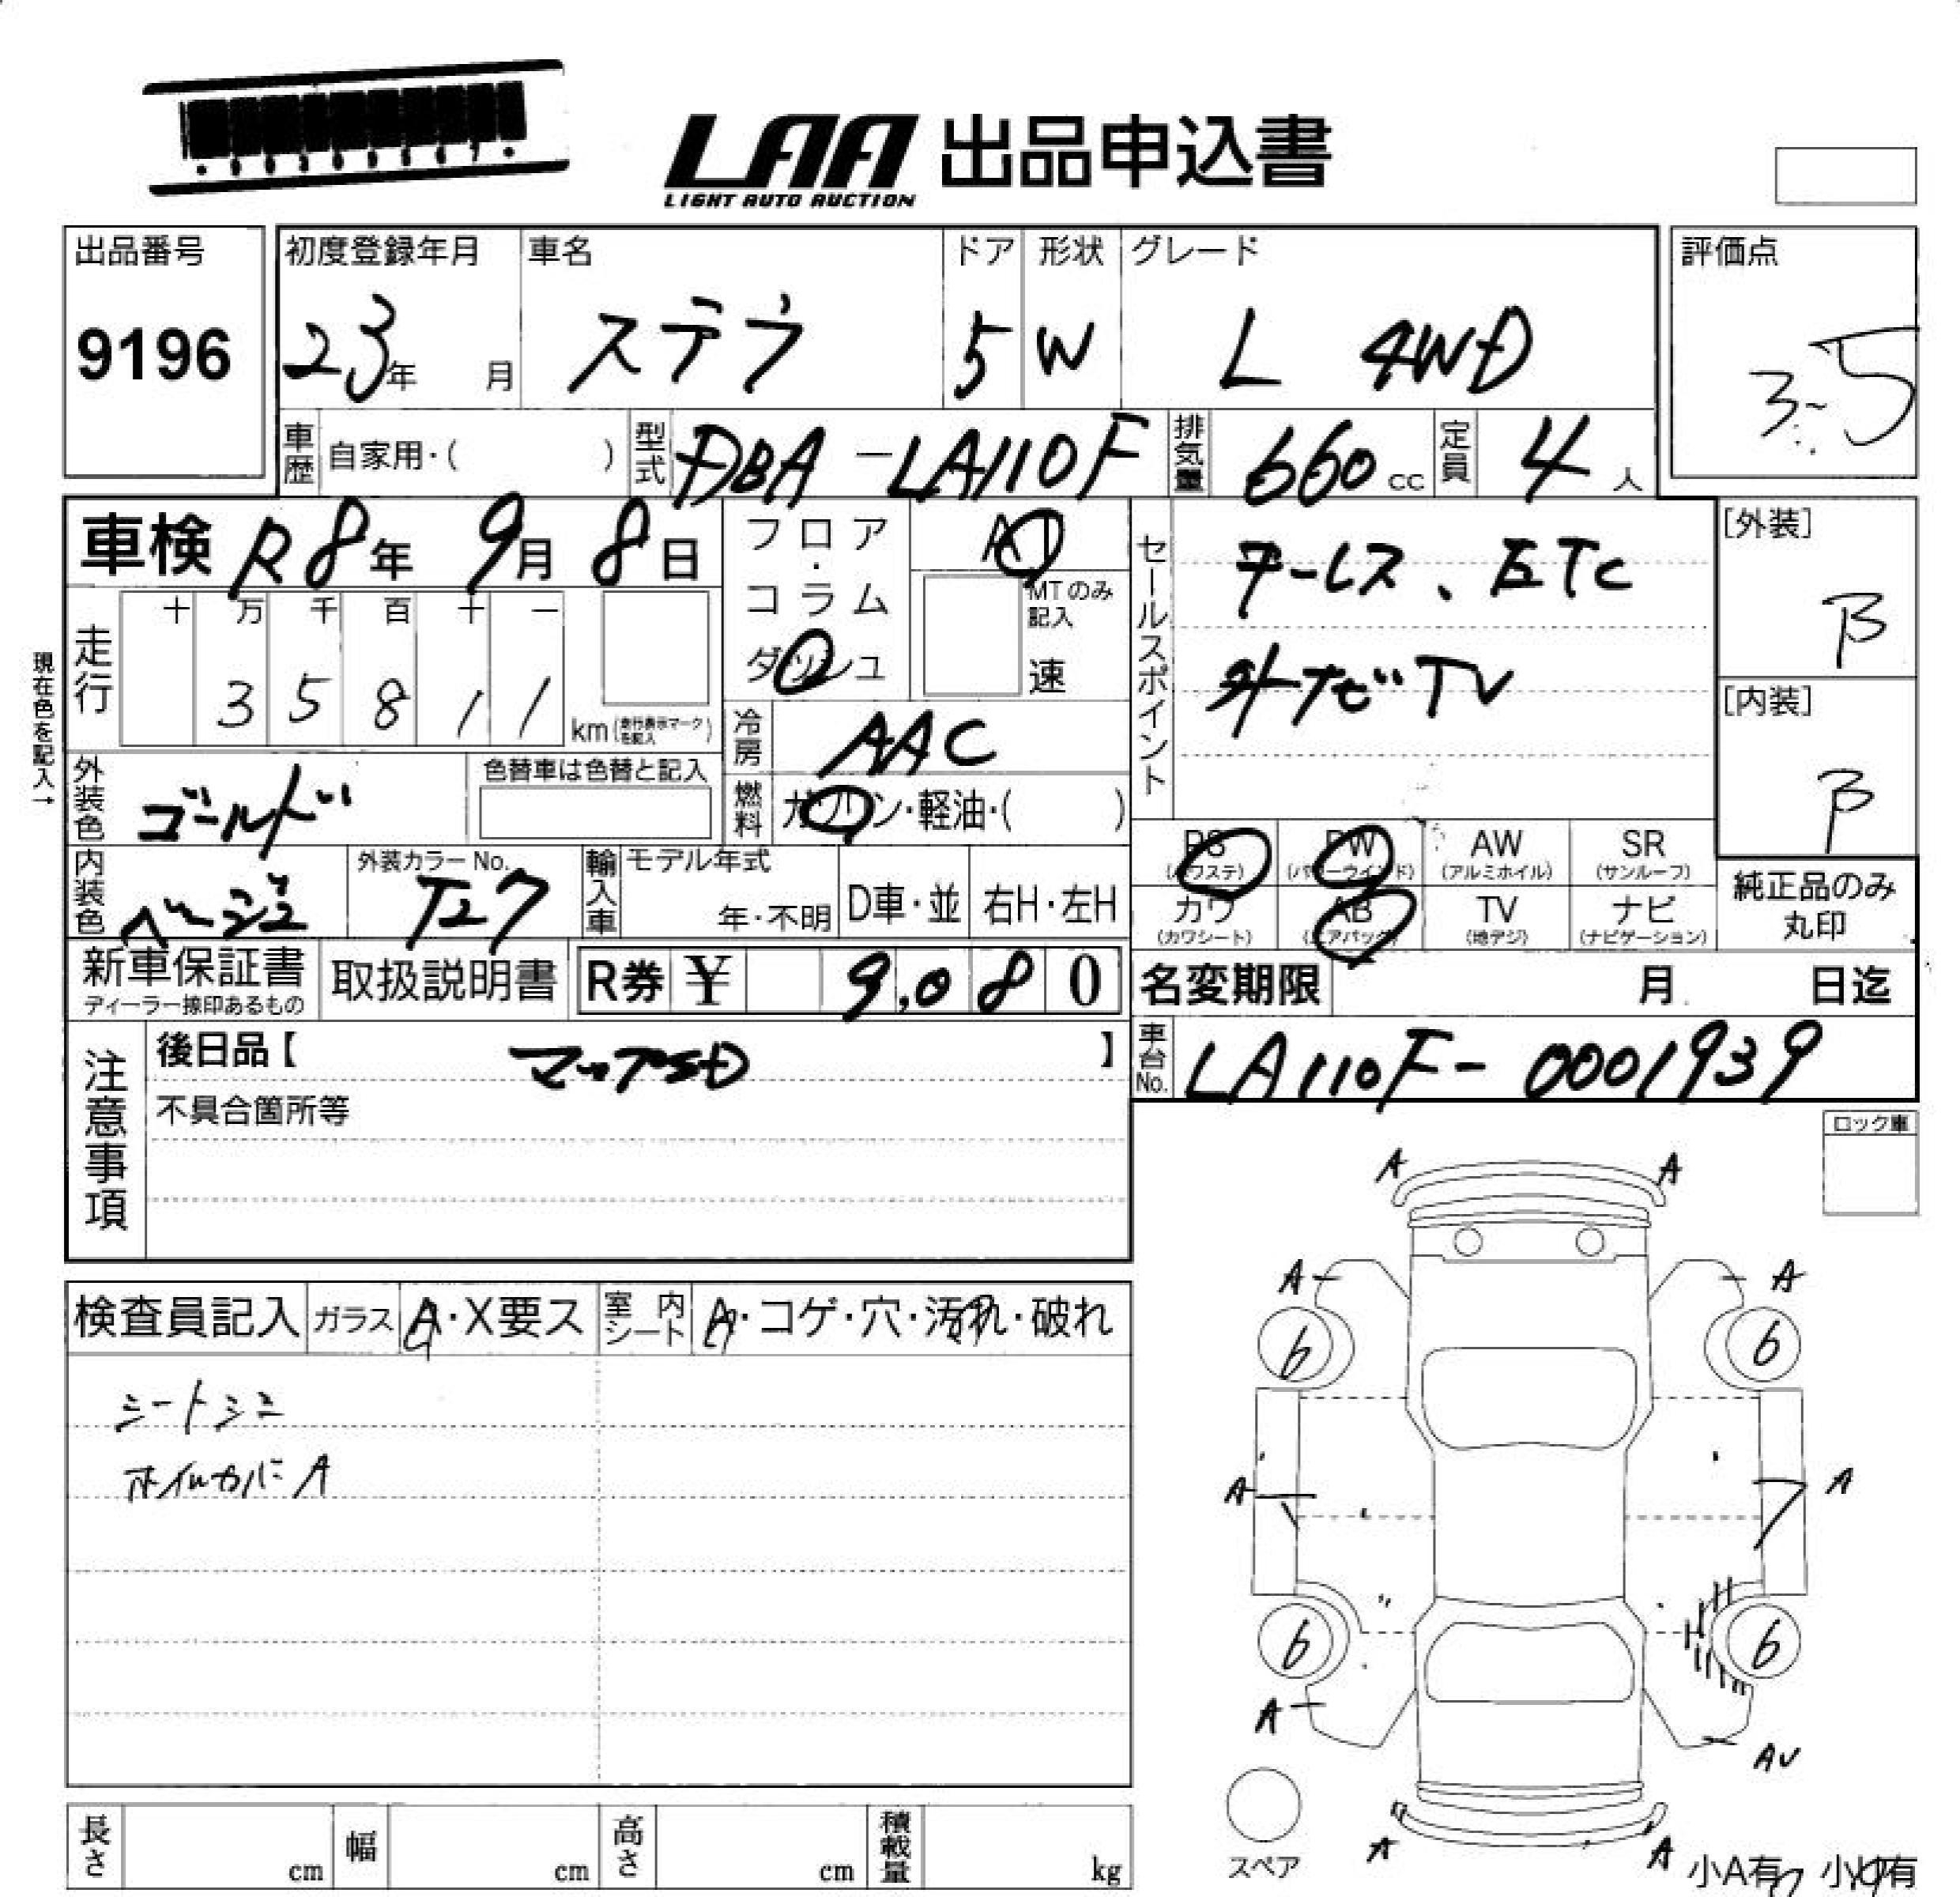 LAA 出品申込書
LIGHT AUTO AUCTION
出品番号
9196
初度登録年月
23年 月
車名
ステラ
ドア
5
形状
W
グレード
L 4WD
評価点
3.5
車歴 自家用・( )
型式 DBA-LA110F
排気量 660cc
定員 4人
車検 R8年 9月 8日
フロア・コラム
ダッシュ
AT
MTのみ記入
速
セールスポイント
キーレス、ETC
外ナビTV
[外装]
B
[内装]
B
現在色を記入→
走行
十 万 千 百 十 一
3 5 8 1 1
km(走行表示マークを記入)
冷房 AAC
外装色 ゴールド
色替車は色替と記入
燃料 ガソリン・軽油・( )
PS (パワステ)
PW (パワーウインド)
AW (アルミホイル)
SR (サンルーフ)
カワ (カワシート)
AB (エアバック)
TV (地デジ)
ナビ (ナビゲーション)
純正品のみ
丸印
内装色 ベージュ
外装カラーNo.
T27
輸入車
モデル年式
年・不明
D車・並
右H・左H
新車保証書
ディーラー捺印あるもの
取扱説明書
R券 ¥ 9,080
名変期限 月 日迄
注意事項
後日品【 マップSD 】
車台No. LA110F-0001939
不具合箇所等
ロック車
検査員記入
ガラス A・X要ス
室内シート A・コゲ・穴・汚れ・破れ
シートシミ
ホイルカバーA
A A
A A
6 6
A A
6 6
A AV
A A
スペア
小A有 小U有
長さ cm
幅 cm
高さ cm
積載量 kg